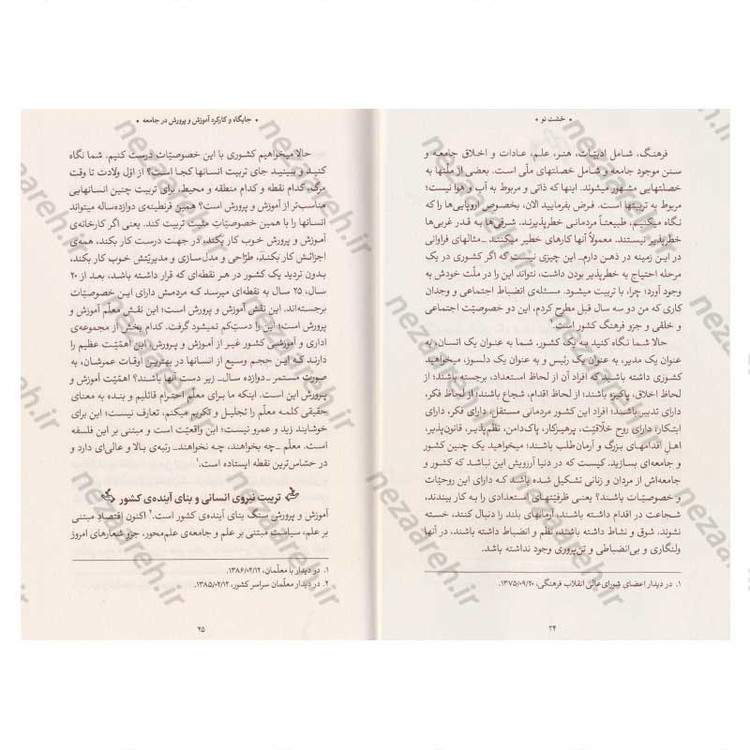 • خشت نو •
فرهنگ، شامل ادبیّات، هنر، علم، عادات و اخلاق جامعه و
سنن موجود جامعه و شامل خصلتهای ملّی است. بعضی از ملّتها به
خصلتهایی مشهور میشوند. اینها که ذاتی و مربوط به آب و هوا نیست؛
مربوط به تربیتها است. فرض بفرمایید الان، بخصوص اروپایی‌ها را که
نگاه میکنیم، طبیعتاً مردمانی خطرپذیرند. شرقی‌ها به قدر غربی‌ها
خطرپذیر نیستند. معمولاً آنها کارهای خطیر میکنند _مثالهای فراوانی
در این زمینه در ذهن دارم_ این چیزی نیست که اگر کشوری در یک
مرحله احتیاج به خطرپذیر بودن داشت، نتواند این را در ملّت خودش به
وجود آورد؛ چرا، با تربیت میشود. مسئله‌ی انضباط اجتماعی و وجدان
کاری که من دو سه سال قبل مطرح کردم، این دو خصوصیّت اجتماعی
و خلقی و جزو فرهنگ کشور است.۱
حالا شما نگاه کنید به یک کشور، شما به عنوان یک انسان، به
عنوان یک مدیر، به عنوان یک رئیس و به عنوان یک دلسوز، میخواهید
کشوری داشته باشید که افراد آن از لحاظ استعداد، برجسته باشند؛ از
لحاظ اخلاق، پاکیزه باشند؛ از لحاظ اقدام، شجاع باشند؛ از لحاظ فکر،
دارای تدبیر باشند؛ افراد این کشور مردمانی مستقل، دارای فکر، دارای
ابتکار، دارای روح خلّاقیّت، پرهیزکار، پاک‌دامن، نظم‌پذیر، قانون‌پذیر،
اهل اقدامهای بزرگ و آرمان‌طلب باشند؛ میخواهید یک چنین کشور
و جامعه‌ای بسازید. کیست که در دنیا آرزویش این نباشد که کشور و
جامعه‌اش از مردان و زنانی تشکیل شده باشد که دارای این روحیّات
و خصوصیّات باشند؟ یعنی ظرفیّتهای استعدادی را به کار ببندند،
شجاعت در اقدام داشته باشند، آرمانهای بلند را دنبال کنند، خسته
نشوند، شوق و نشاط داشته باشند، نظم و انضباط داشته باشند، در آن
ولنگاری و بی‌انضباطی و تن‌پروری وجود نداشته باشد.
۱. در دیدار اعضای شورای‌عالی انقلاب فرهنگی، ۱۳۷۵/۰۹/۲۰.
۲۴
• جایگاه و کارکرد آموزش و پرورش در جامعه •
حالا میخواهیم کشوری با این خصوصیّات درست کنیم. شما نگاه
کنید و ببینید جای تربیت انسانها کجا است؟ از اوّل ولادت تا وقت
مرگ، کدام نقطه و کدام منطقه و محیط، برای تربیت چنین انسانهایی
مناسب‌تر از آموزش و پرورش است؟ همین قرنطینه‌ی دوازده‌ساله میتواند
انسانها را با همین خصوصیّات مثبت تربیت کند. یعنی اگر کارخانه‌ی
آموزش و پرورش خوب کار بکند، در جهت درست کار بکند، همه‌ی
اجزائش کار بکند، طرّاحی و مدل‌سازی و مدیریّتش خوب کار بکند،
بدون تردید یک کشور در هر نقطه‌ای که قرار داشته باشد، بعد از ۲۰
سال، ۲۵ سال به نقطه‌ای میرسد که مردمش دارای این خصوصیّات
برجسته‌اند. این نقش آموزش و پرورش است؛ این نقش معلّم آموزش و
پرورش است؛ این را دست‌کم نمیشود گرفت. کدام بخش از مجموعه‌ی
اداری و آموزشی کشور غیر از آموزش و پرورش، این اهمّیّت عظیم را
دارند که این حجم وسیع از انسانها در بهترین اوقات عمرشان، به
صورت مستمر _دوازده سال_ زیر دست آنها باشند؟ اهمّیّت آموزش و
پرورش این است. اینکه ما برای معلّم احترام قائلیم و بنده به معنای
حقیقی کلمه معلّم را تجلیل و تکریم میکنم، تعارف نیست؛ این برای
خوشایند زید و عمرو نیست؛ این واقعیّت است و مبتنی بر این فلسفه
است. معلّم _چه بخواهند، چه نخواهند_ رتبه‌ی بالا و عالی‌ای دارد و
در حسّاس‌ترین نقطه ایستاده است.۱
تربیت نیروی انسانی و بنای آینده‌ی کشور
آموزش و پرورش سنگ بنای آینده‌ی کشور است.۲ اکنون اقتصاد مبتنی
بر علم، سیاست مبتنی بر علم و جامعه‌ی علم‌محور، جزو شعارهای امروز
۱. در دیدار با معلّمان، ۱۳۸۶/۰۲/۱۲.
۲. در دیدار معلّمان سراسر کشور، ۱۳۸۵/۰۲/۱۲.
۲۵
nezaareh.ir